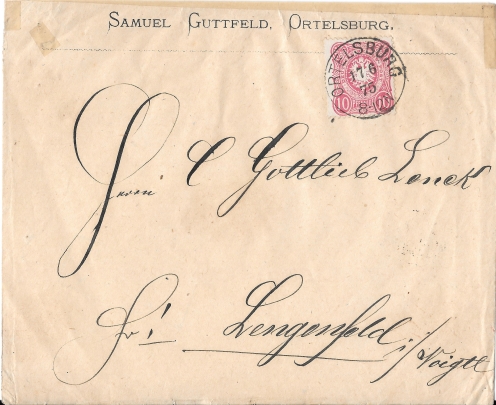 SAMUEL GUTTFELD, ORTELSBURG.
ORTELSBURG
17 6
75
8-
10 10
Herrn C Gottlieb Lenck
Lengenfeld i/Voigtl